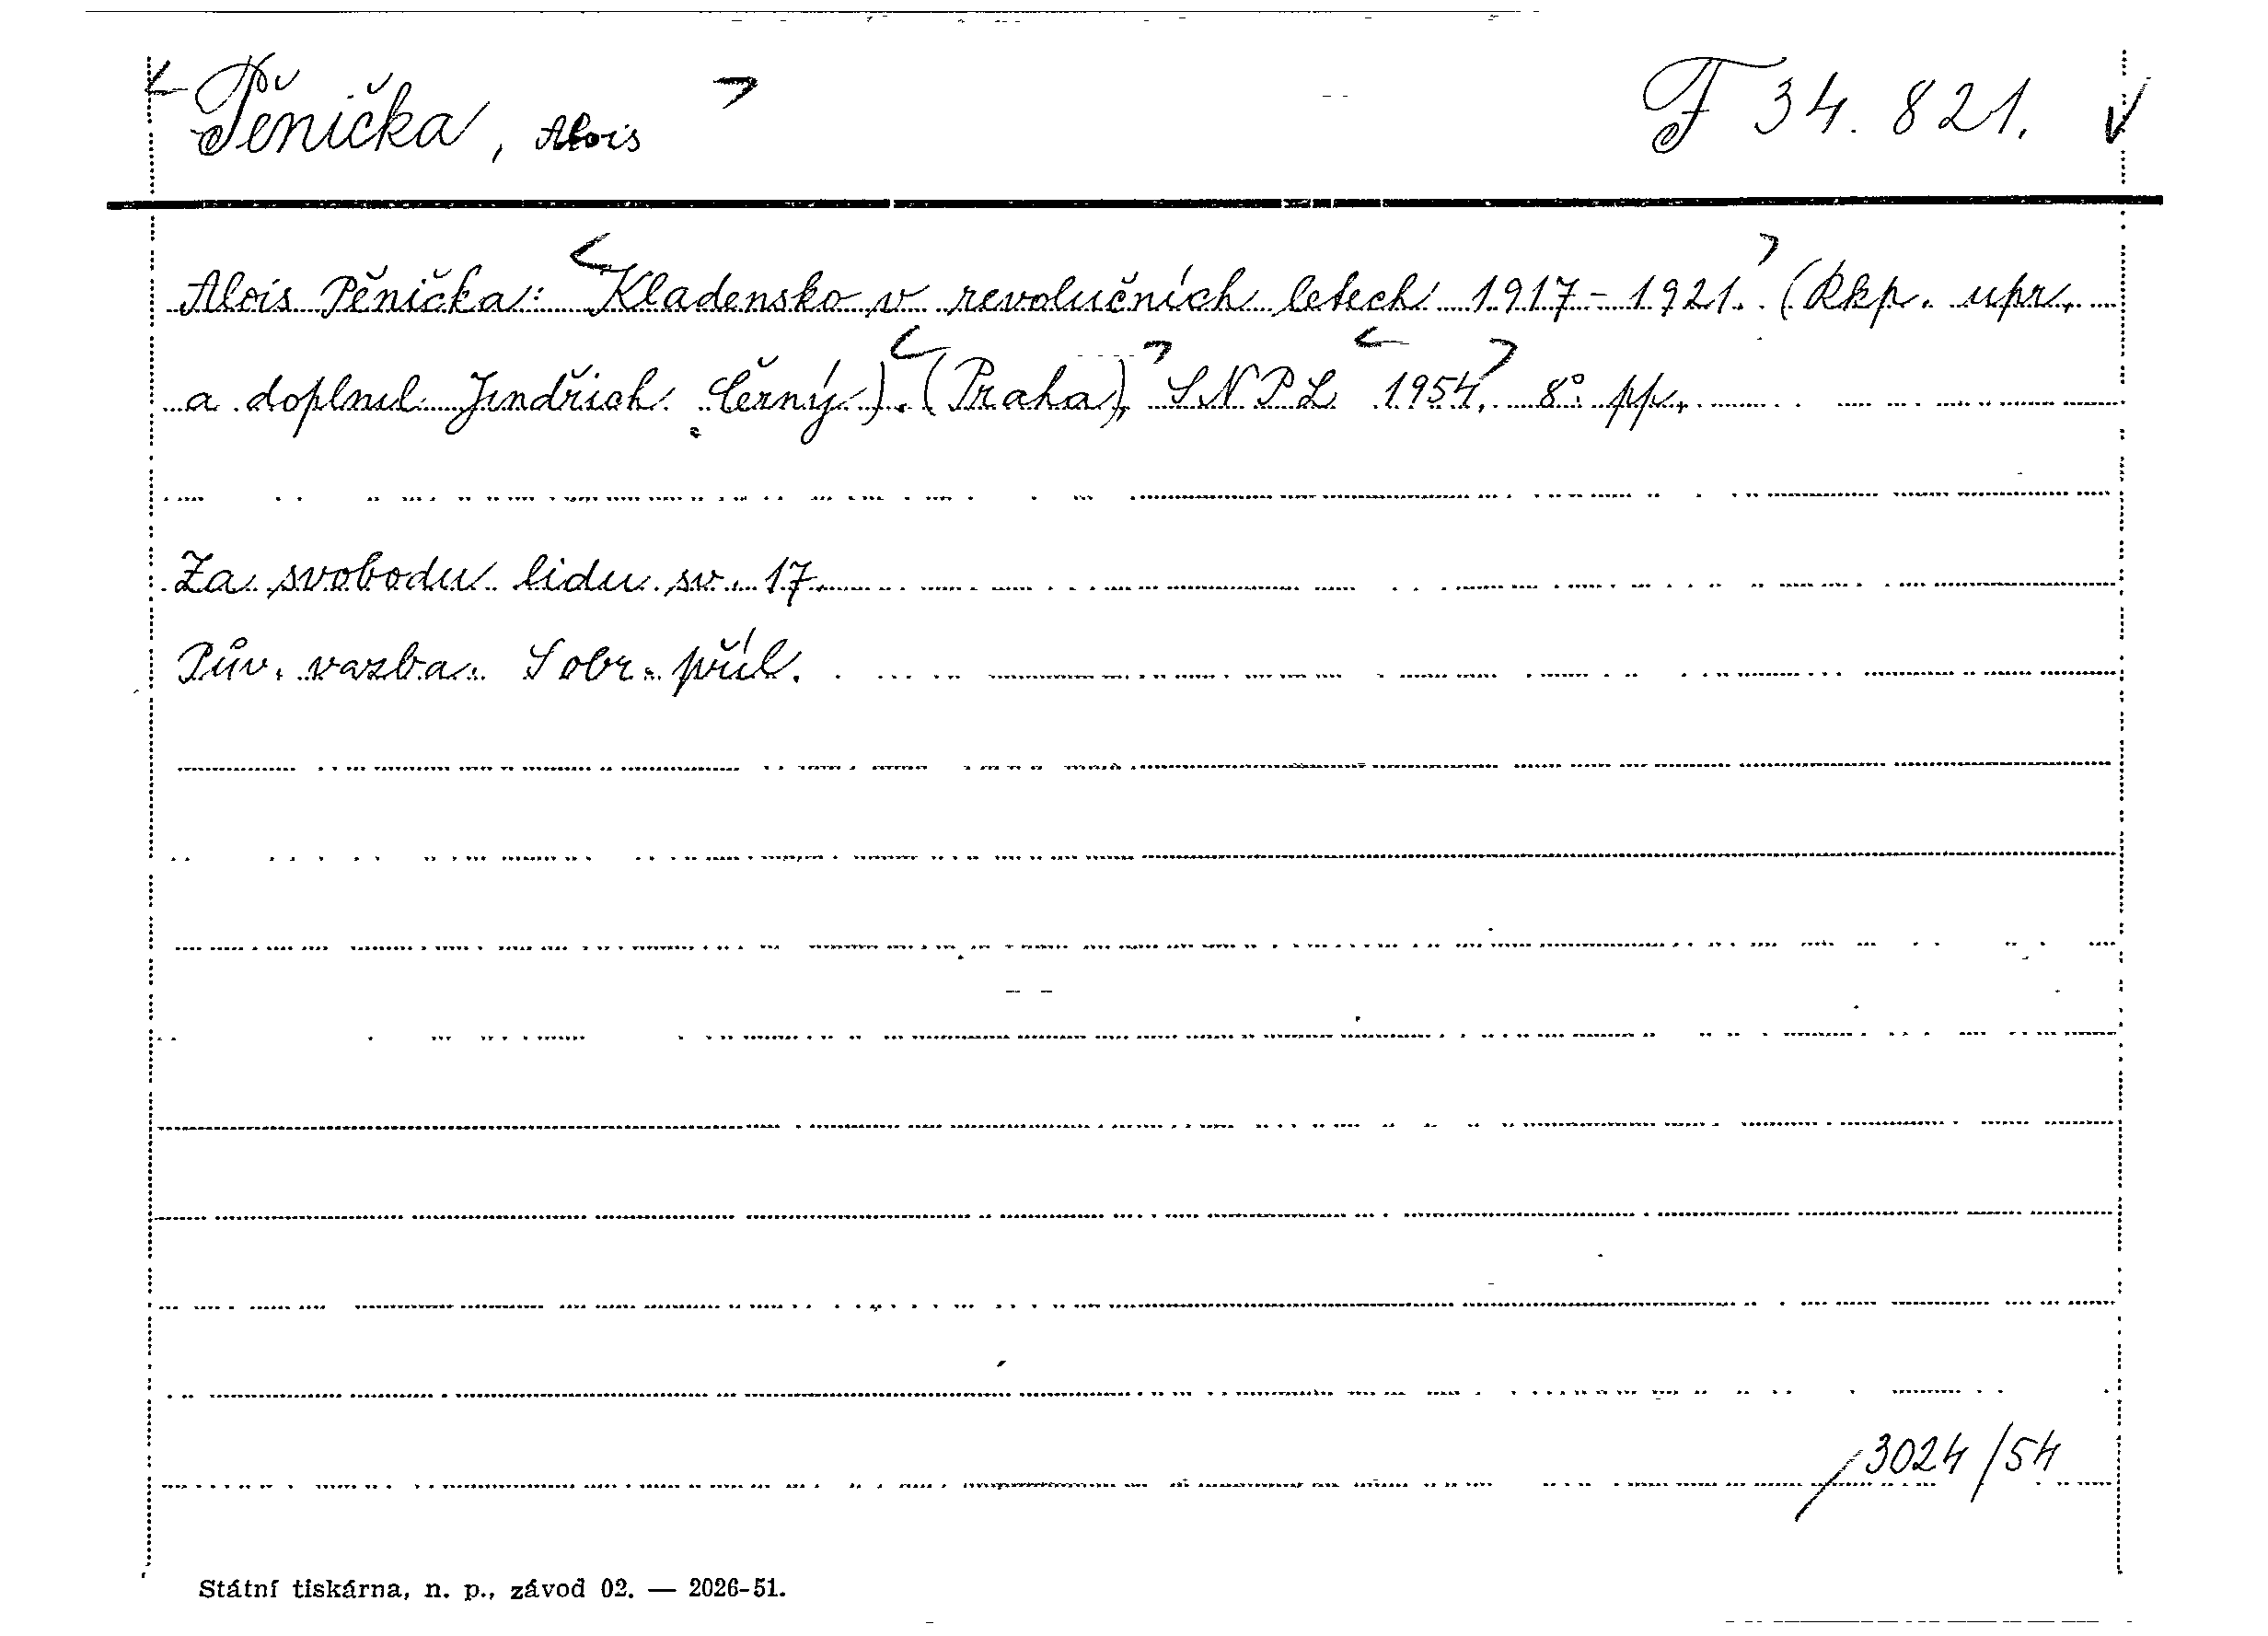 Pěnička, Alois F 34.821.
Alois Pěnička: Kladensko v revolučních letech 1917-1921. (Rkp. upr.
a doplnil Jindřich Černý). (Praha), SNPL 1954. 8° pp.
Za svobodu lidu sv. 17.
Pův. vazba. S obr. příl.
3024/54
Státní tiskárna, n. p., závod 02. — 2026-51.